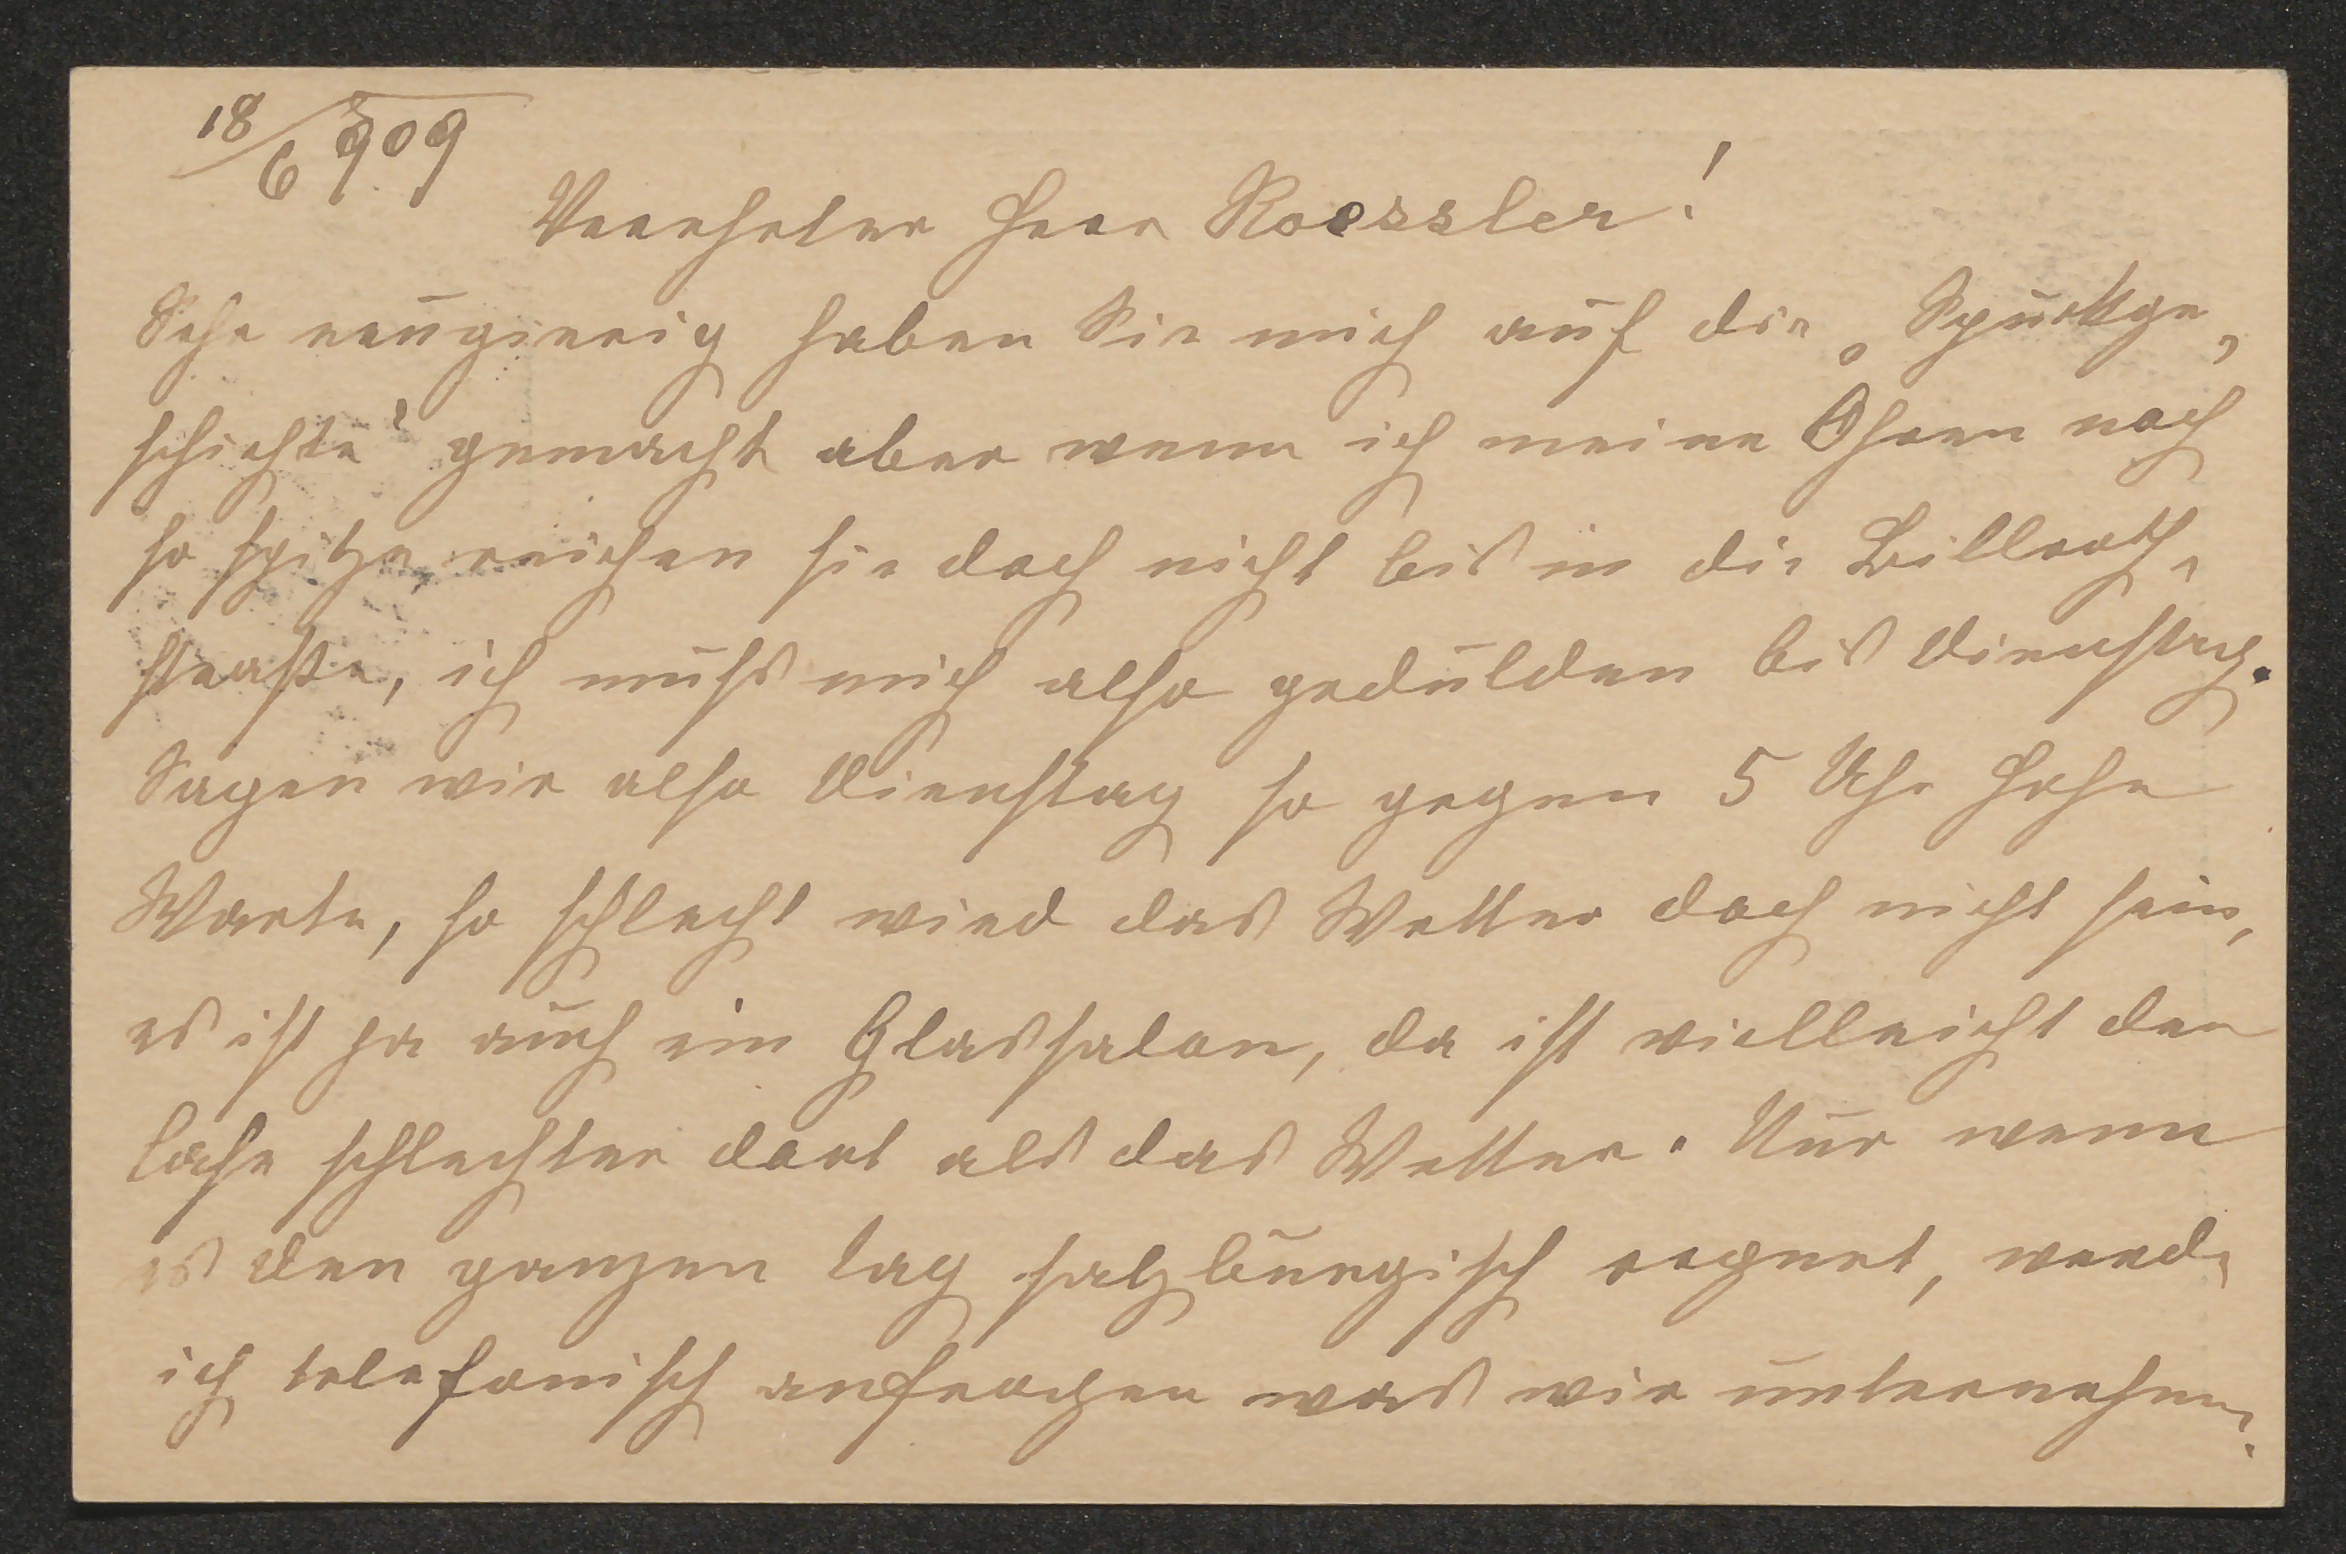 18/6 909
Verehrter Herr Roessler!
Sehr neugierig haben Sie mich auf die „Spuckge-
schichte“ gemacht aber wenn ich meine Ohren noch
so spitze, reichen sie doch nicht bis in die Billroth-
straße, ich muß mich also gedulden bis Dienstag.
Sagen wir also Dienstag so gegen 5 Uhr Hohe
Warte, so schlecht wird das Wetter doch nicht sein,
es ist ja auch ein Glassalon, da ist vielleicht der
Cafe schlechter dort als das Wetter. Nur wenn
es den ganzen Tag salzburgisch regnet, werde
ich telefonisch anfragen was wir unternehmen.